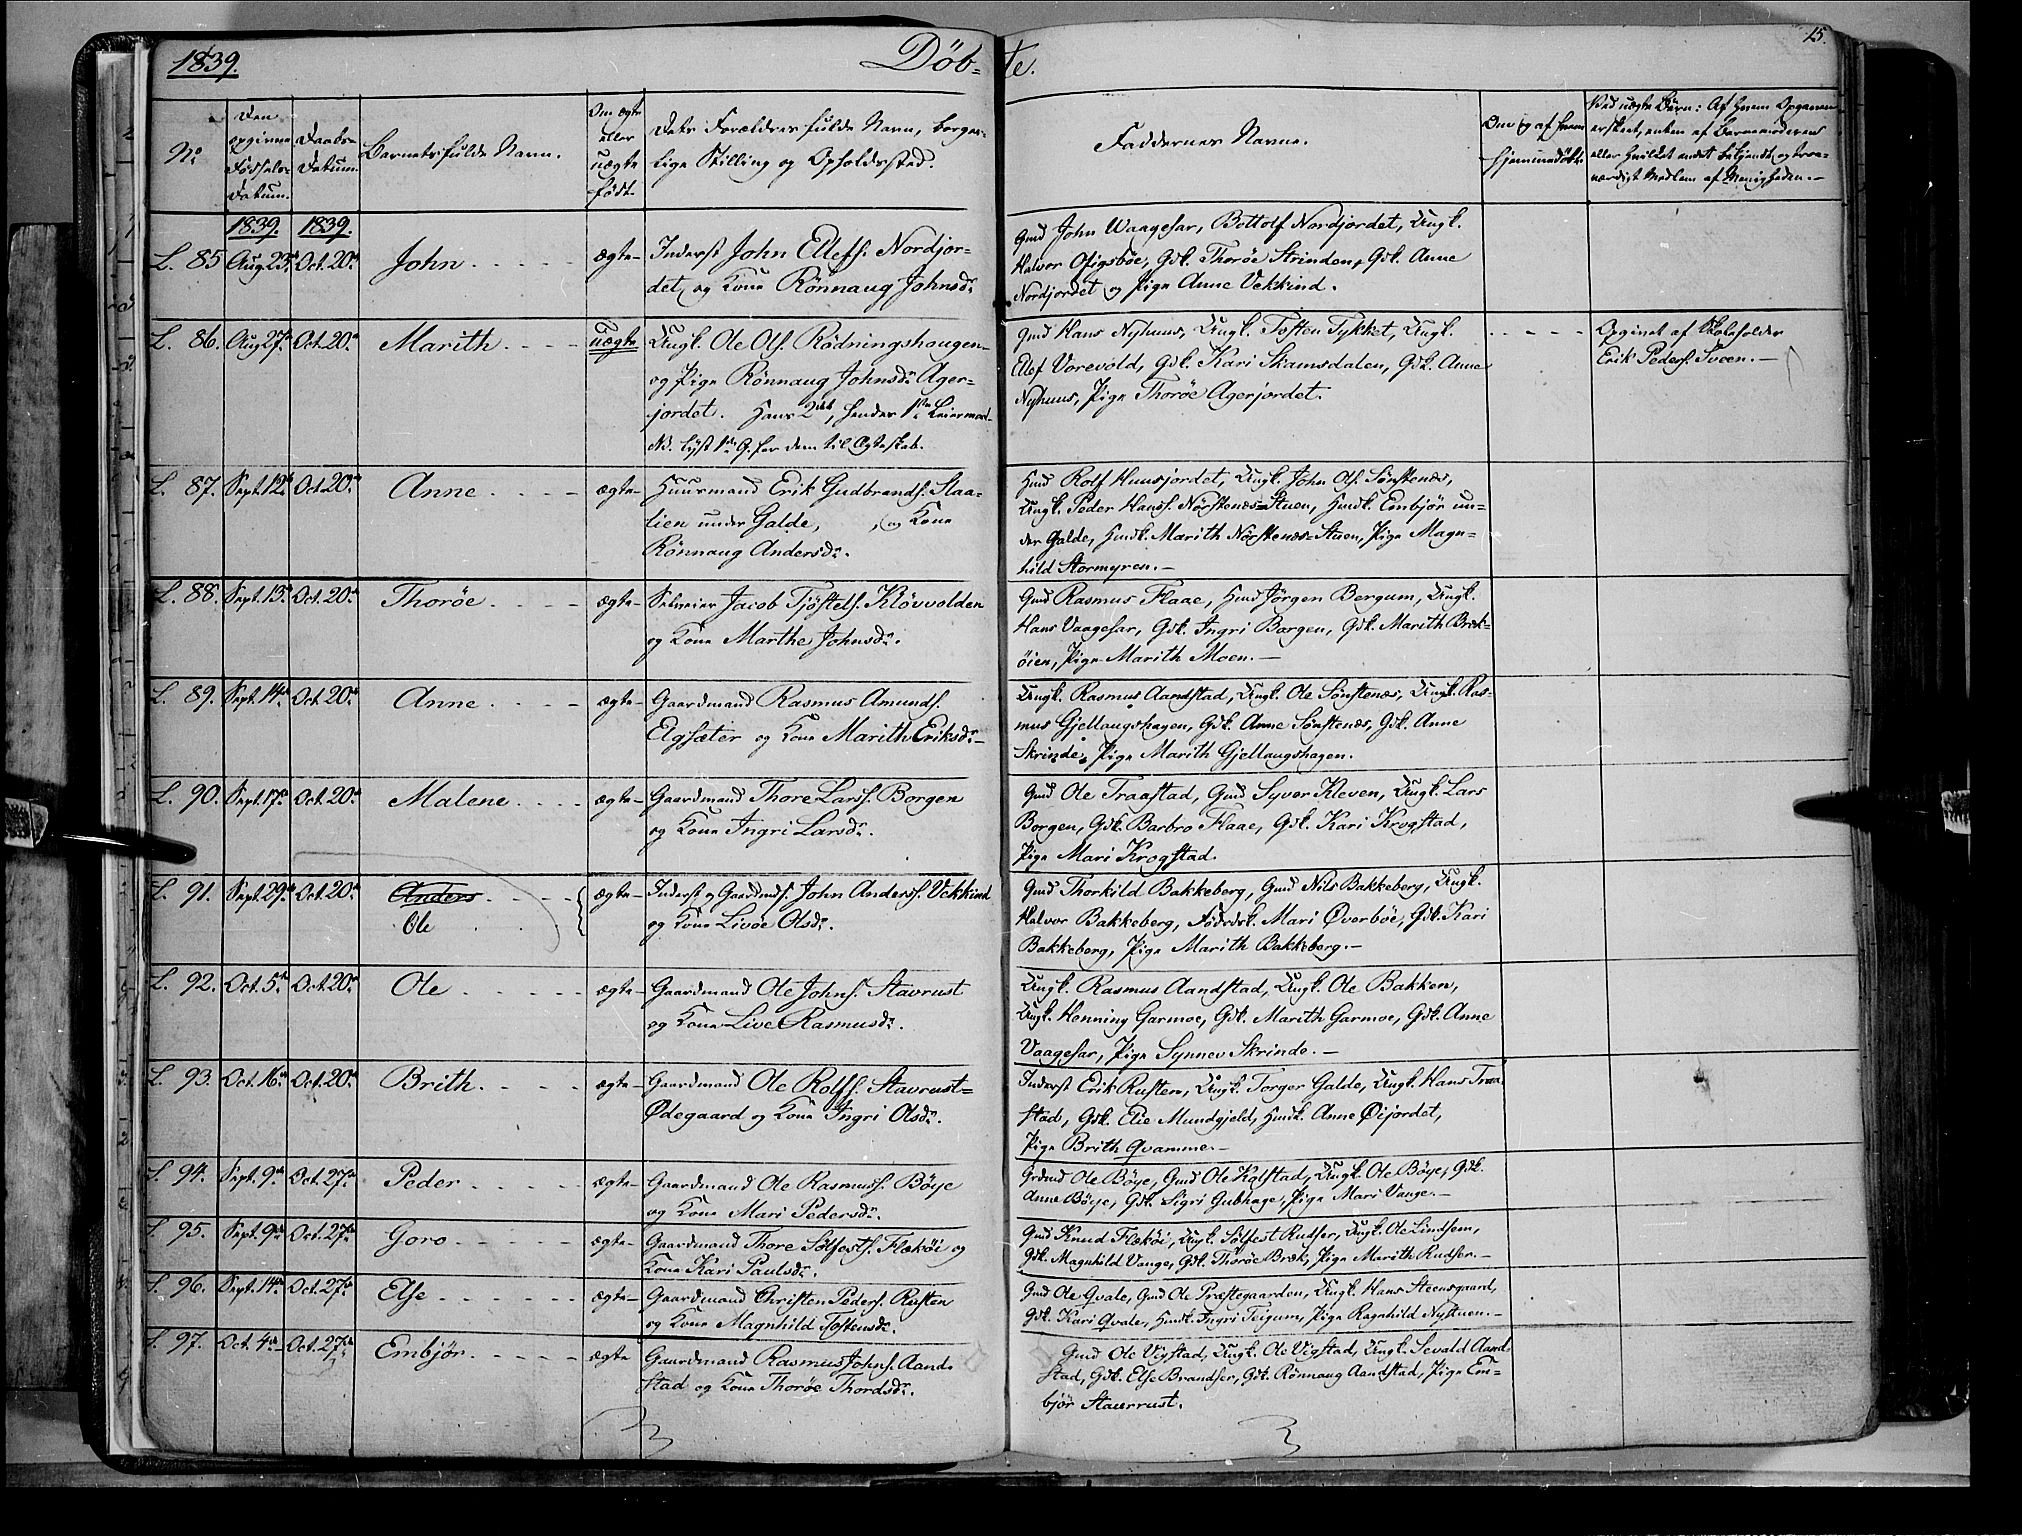 1839.
Döb-
te.
15.
No
Den opgivne Fødsels-Datum.
Daabs-Datum.
Barnets fulde Navn.
Om ægte eller uægte født.
Dets Forældres fulde Navn, borger-
lige Stilling og Opholdssted.
Faddernes Navne.
Om og af hvem hjemmedöbt.
Ved uægte Börn: Af hvem Opgaven
er skeet, enten af Barnemoderen
eller hvilket andet bekjendt og tro-
værdigt Medlem af Menigheden.—
1839. 1839.
L. 85 Aug 23de Oct. 20de John - - - - - ægte- Inderst John Ellefs. Nordjor-
det og Kone Rönnaug Johnsdr.
Gmd John Waagesar, Bottolf Nordjordet, Ungk.
Halvor Ofigsböe, Gdk. Thoröe Strinden, Gdk. Anne
Nordjordet og Pige Anne Vekkind.
L. 86. Aug 27de Oct. 20de Marith - - - - uægte Ungk. Ole Ols. Rödningshougen
og Pige Rönnaug Johnsdr. Ager-
jordet. Hans 2det, hendes 1ste Leiermaal.
NB. lyst 1ste G. for dem til Ægteskab.
Gmd Hans Nyhuus, Ungk. Tosten Tykket, Ungk.
Elef Vorevold, Gdk. Kari Skamsdalen, Gdk. Anne
Nyhuus, Pige Thoröe Agerjordet.
- - - - - Opgivet af Skoleholder
Erik Peders. Sveen.—
L. 87. Sept. 12te Oct. 20de Anne - - - - ægte- Huusmand Erik Gudbrands. Slaa-
lien under Galde, , og Kone
Rönnaug Andersdr.
Hmd Rolf Huusjordet, Ungk. John Ols. Sönstenæs,
Ungk. Peder Hanss. Nörstenæs-Stuen, Hmdk. Embjör un-
der Galde, Hmdk. Marith Nörstenæs-Stuen, Pige Magn-
hild Stormyren.—
L. 88. Sept. 13de Oct. 20de Thoröe - - - - ægte- Selveier Jacob Tjöstels. Klövvolden
og Kone Marthe Johnsdr.
Gmd Rasmus Flaae, Hmd Jörgen Bergum, Ungk.
Hans Vaagesar, Gdk. Ingri Borgen, Gdk. Marith Bræk-
öien, Pige Marith Moen.—
L. 89. Sept. 14de Oct. 20de Anne - - - - ægte- Gaardmand Rasmus Amunds.
Elgsæter og Kone Marith Eriksdr.—
Ungk. Rasmus Aandstad, Ungk. Ole Sönstenæs, Ungk. Ras-
mus Gjellaugshagen, Gdk. Anne Sönstenæs, Gdk. Anne
Skrinde, Pige Marith Gjellaugshagen.
L. 90. Sept. 17de Oct. 20de Malene - - - - ægte- Gaardmand Thore Larss. Borgen
og Kone Ingri Larsdr.
Gmd Ole Traastad, Gmd Syver Kleven, Ungk. Lars
Borgen, Gdk. Barbro Flaae, Gdk. Kari Krogstad,
Pige Mari Krogstad.
L. 91. Sept. 29de Oct. 20de Anders - - - - ægte- Inderst og Gaardmds. John Anderss. Vekkind
Ole og Kone Livöe Olsdr.
Gmd Thorkild Bakkeberg, Gmd Nils Bakkeberg, Ungk.
Halvor Bakkeberg, Föderdk. Mari Øverböe, Gdk. Kari
Bakkeberg, Pige Marith Bakkeberg.—
L. 92. Oct. 5te Oct. 20de Ole - - - - - ægte- Gaardmand Ole Johns. Stavrust
og Kone Live Rasmusdr.
Ungk. Rasmus Aandstad, Ungk. Ole Bakken,
Ungk. Henning Garmoe, Gdk. Marith Garmoe, Gdk. Anne
Vaagesar, Pige Synnev Skrinde.—
L. 93. Oct. 16de Oct. 20de Brith - - - - ægte- Gaardmand Ole Rolfs. Stavrust-
Ødegaard og Kone Ingri Olsdr.
Inderst Erik Rusten, Ungk. Torger Galde, Ungk. Hans Traa-
stad, Gdk. Elie Mundgjeld, Hmdk. Anne Øijordet,
Pige Brith Qvamme.—
L. 94. Sept. 9de Oct. 27de Peder - - - - ægte- Gaardmand Ole Rasmuss. Böye
og Kone Mari Pedersdr.
Ole Böye, Gmd Ole Kolstad, Ungk. Ole Böye, Gdk.
Anne Böye, Gdk. Sigri Gubhage, Pige Mari Vange.—
L. 95. Sept. 9de Oct. 27de Goro - - - - - ægte- Gaardmand Thore Sölfests. Flækøi og
Kone Kari Paulsdr.
Gmd Knud Flækøi, Ungk. Sölfest Rudser, Ungk. Ole Lindsem,
Gdk. Magnhild Vange, Gdk. Thoröe Bræk, Pige Marith Rudser.—
L. 96. Sept. 14de Oct. 27de Else - - - - - - ægte- Gaardmand Christen Peders. Rusten
og Kone Magnhild Tostensdr.
Gmd Ole Qvale, Gmd Ole Præstegaarden, Ungk. Hans Steensgaard,
Gdk. Kari Qvale, Hmdk. Ingri Teigum, Pige Ragnhild Nystuen.—
L. 97. Oct. 4de Oct. 27de Embjör - - - - - ægte Gaardmand Rasmus Johns. Aand-
stad og Kone Thoröe Thordsdr.
Gmd Ole Vigstad, Ungk. Ole Vigstad, Ungk. Sevald Aand-
stad, Gdk. Else Brandser, Gdk. Rönnaug Aandstad, Pige Em-
björ Staurrust.